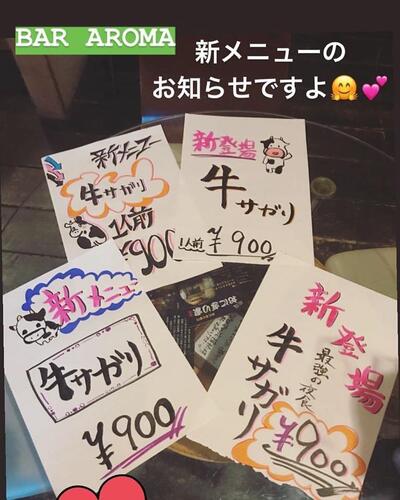 BAR AROMA
新メニューの
お知らせですよ🤗💕
新メニュー
牛サガリ
1人前
¥900
新登場
牛サガリ
1人前 ¥900
新メニュー
牛サガリ
¥900
新登場
最強の夜食
牛サガリ
¥900